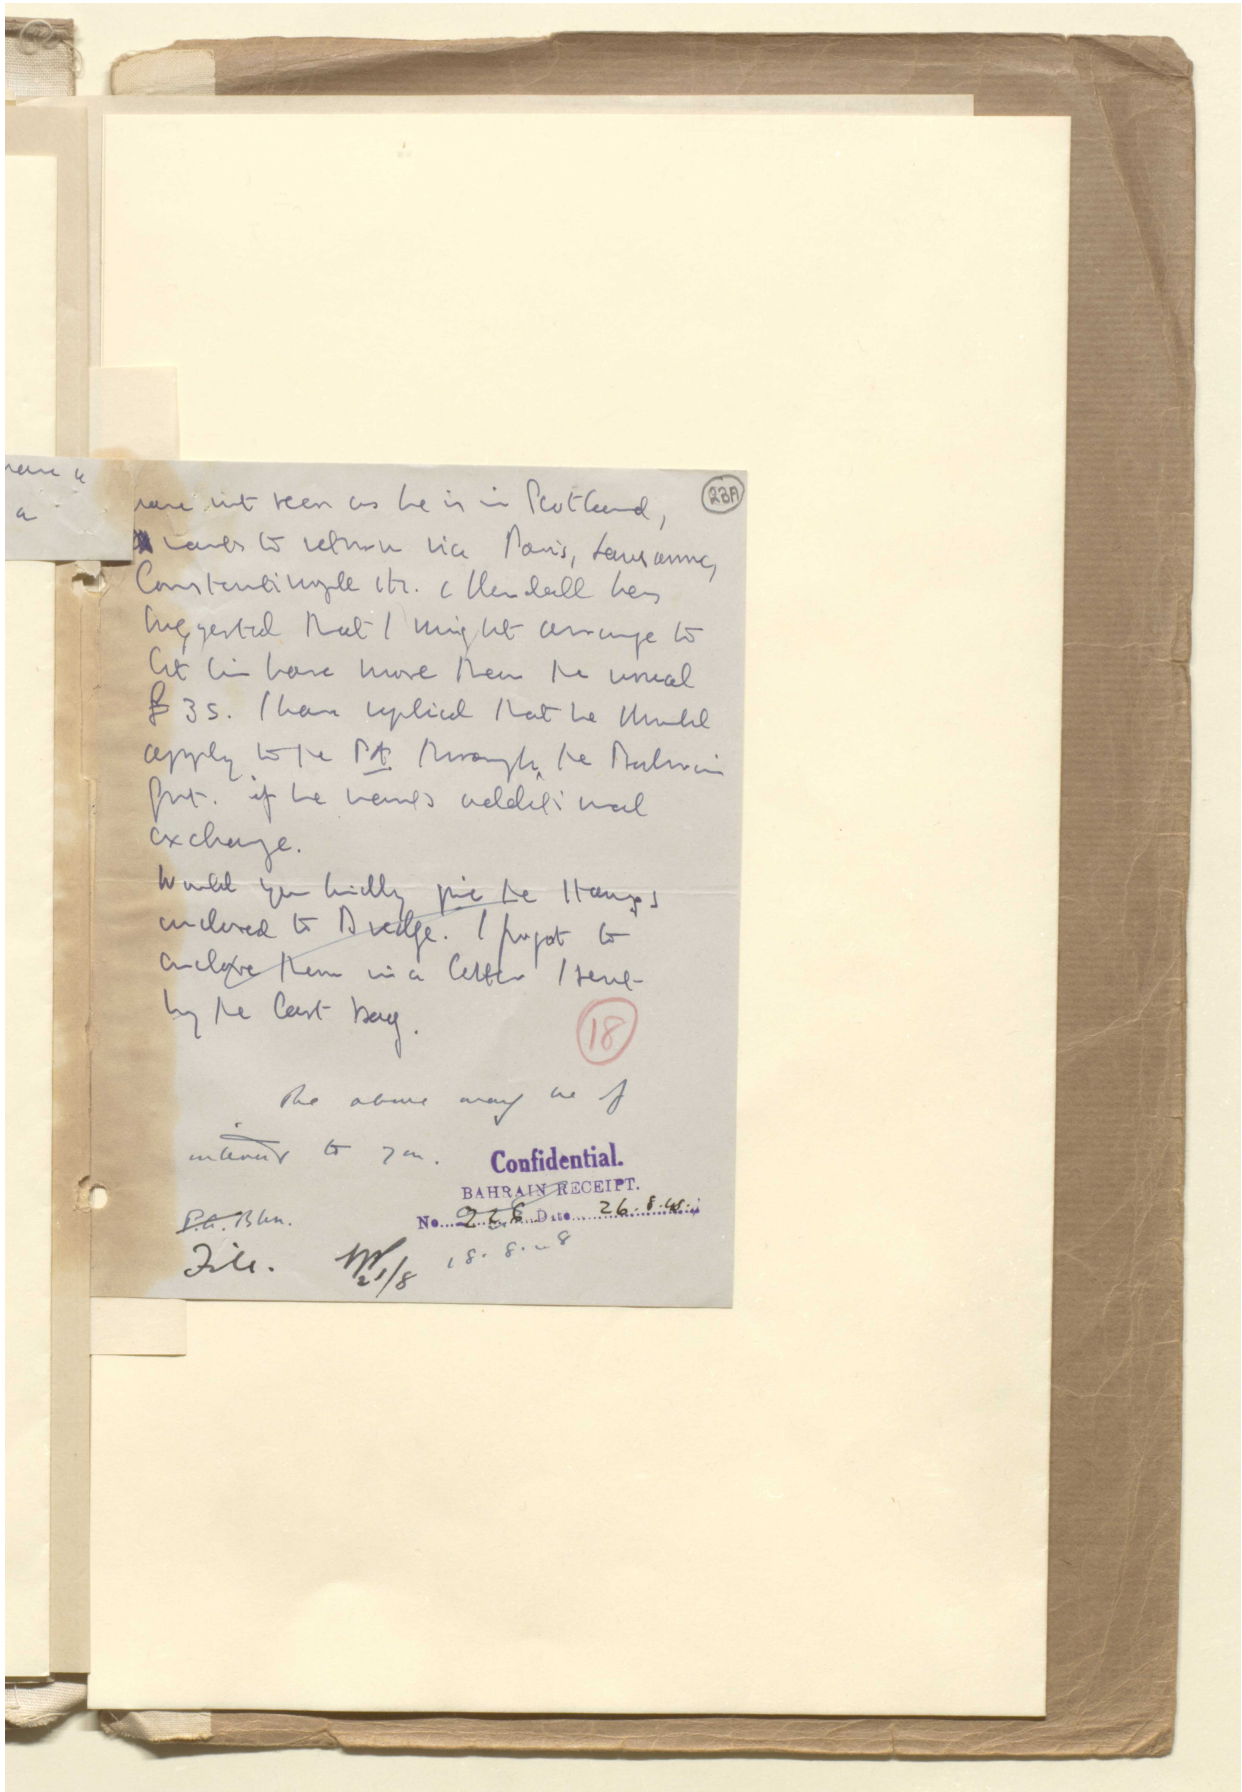 a
23A
have not seen as he is in Scotland,
wants to return via Paris, Lausanne,
Constantinople etc. Kendall has
suggested that I might arrange to
let him have more than the usual
£ 35. I have replied that he should
apply to the PA through the Bahrain
Govt. if he wants additional
exchange.
Would you kindly give the stamps
enclosed to Dredge. I forgot to
enclose them in a letter I sent
by the last bag.
18
The above may be of
interest to you.
Confidential.
BAHRAIN RECEIPT.
No. 268 Date 26.8.48.
P.A. Bhn.
18.8.48
File.
21/8